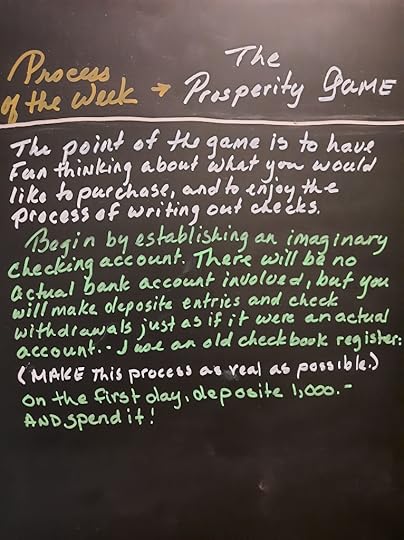 Process of the Week → The Prosperity Game
The point of the game is to have
Fun thinking about what you would
like to purchase, and to enjoy the
process of writing out checks.
Begin by establishing an imaginary
checking account. There will be no
actual bank account involved, but you
will make deposite entries and check
withdrawals just as if it were an actual
account.. I use an old checkbook register:
(MAKE This process as real as possible.)
On the first day, deposite 1,000.-
AND spend it!